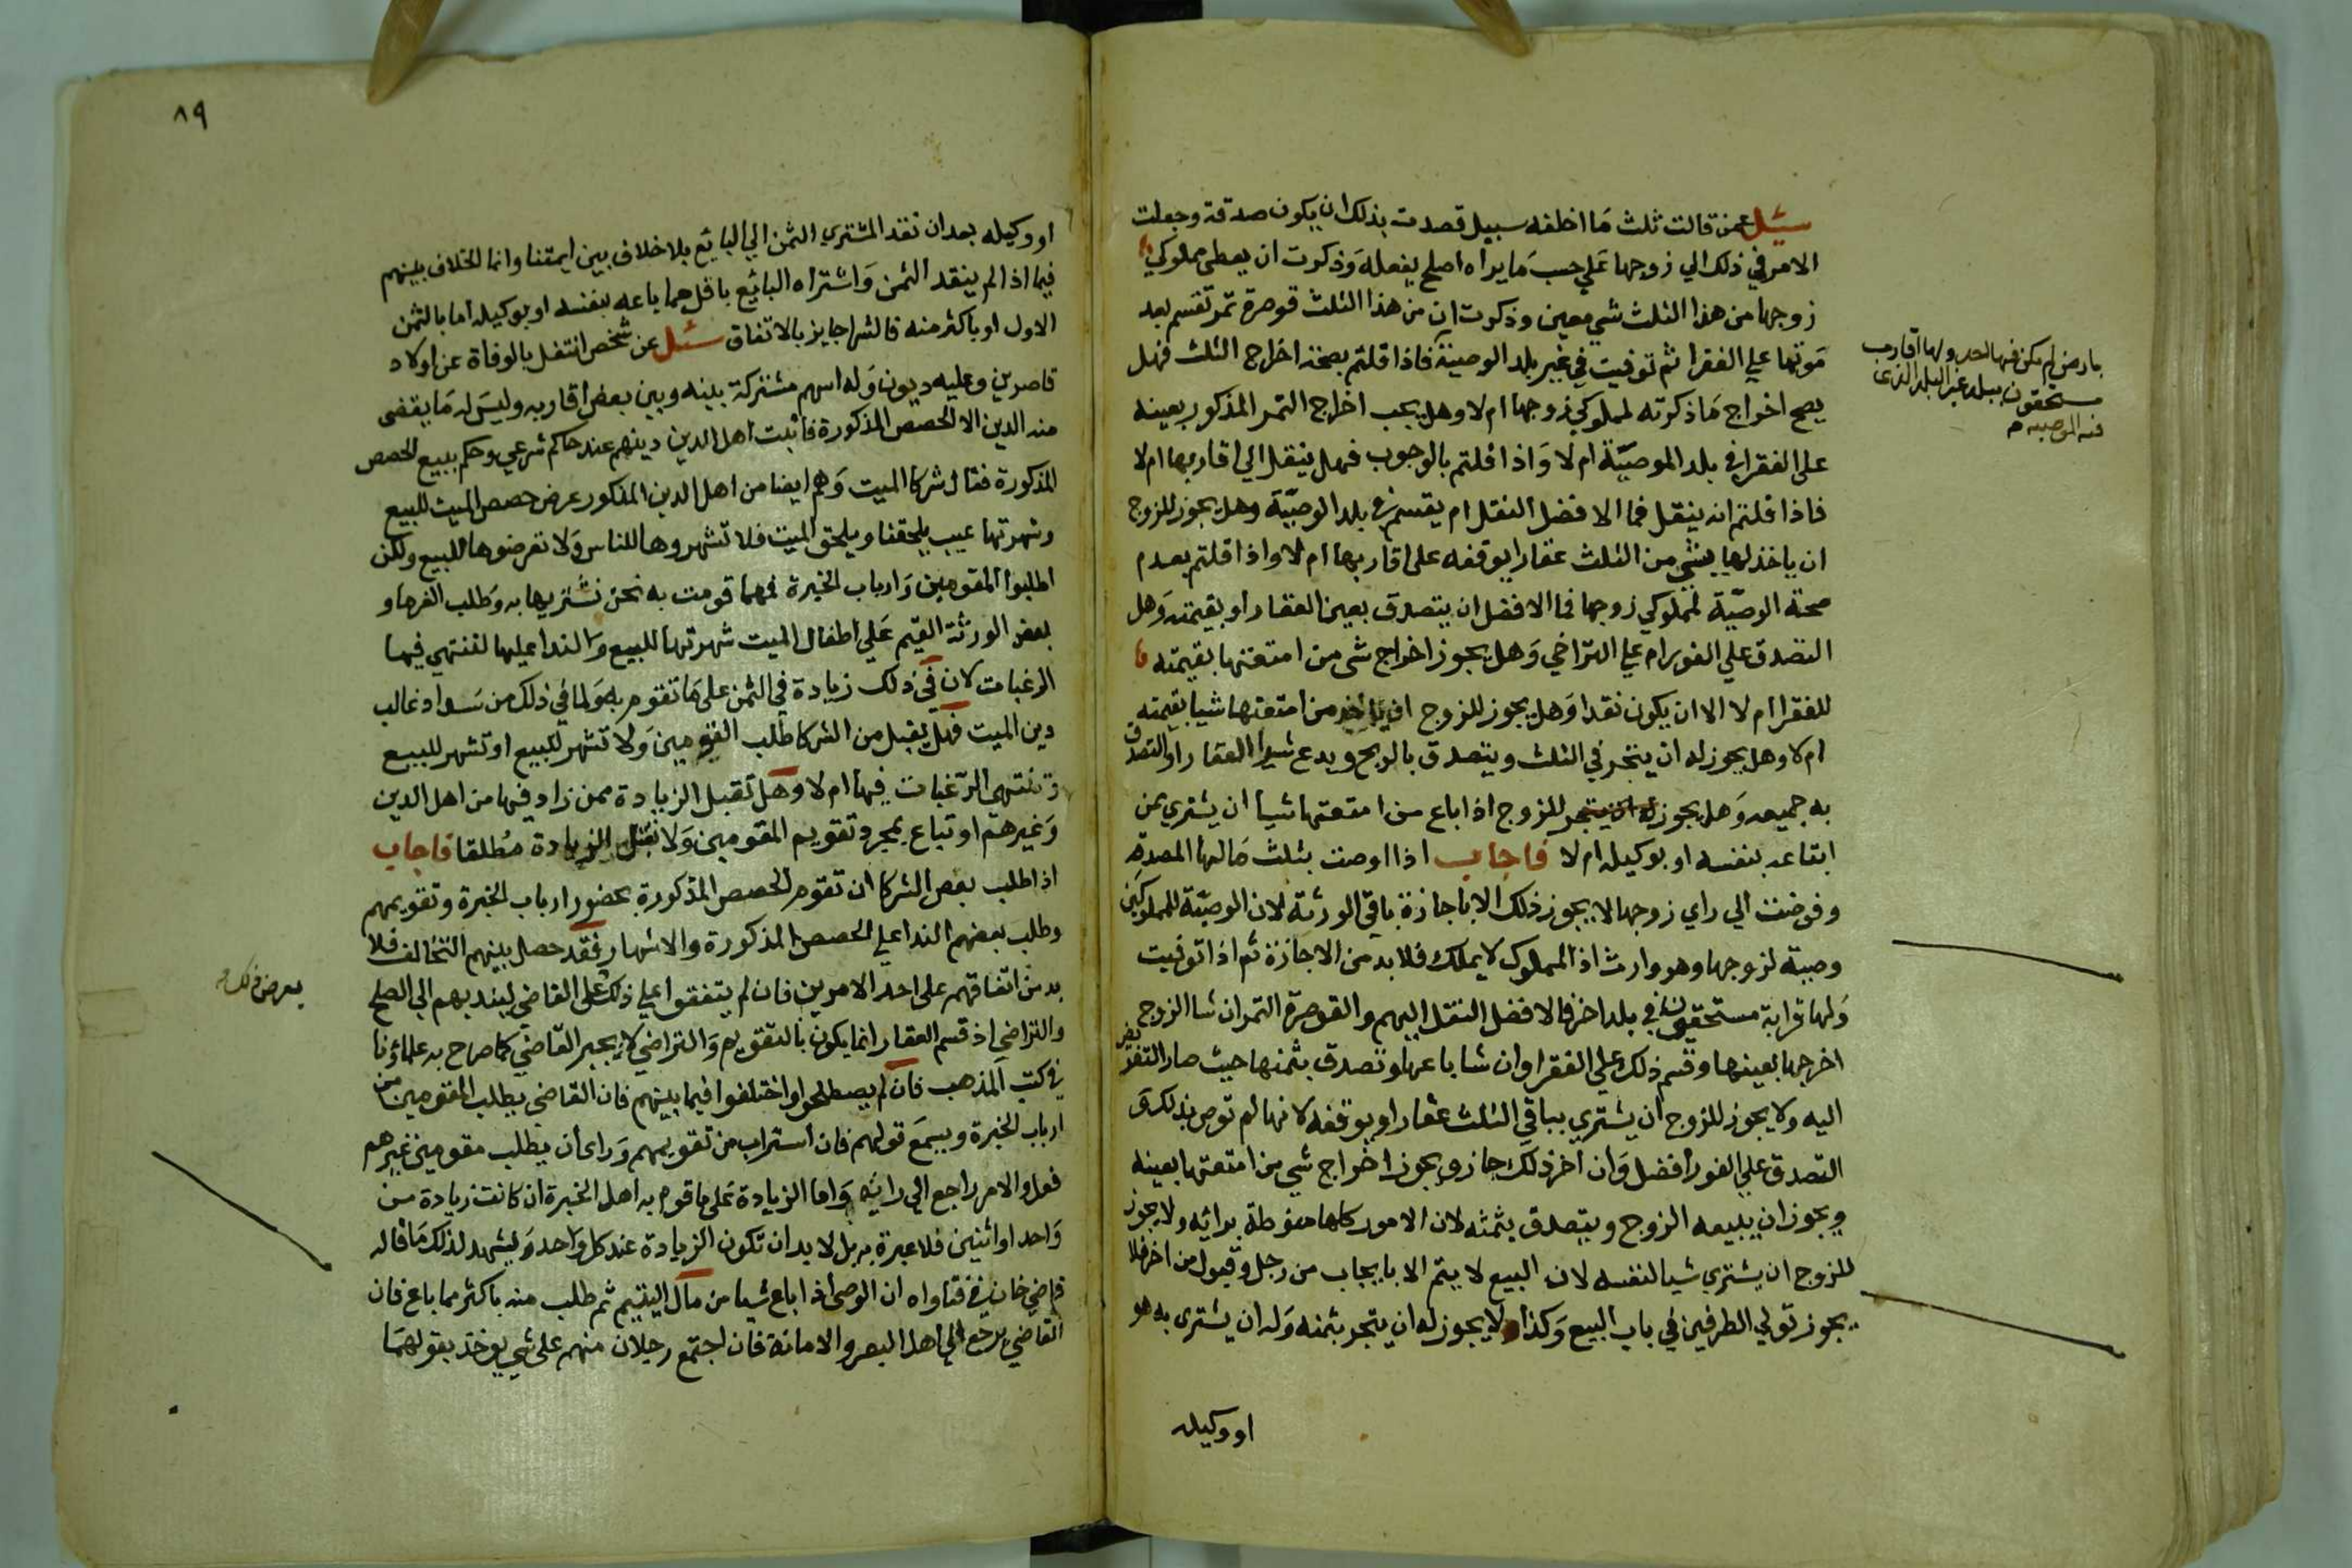 سئل عمن قالت ثلث ما اخلفه سبيل قصدت بذلك ان يكون صدقة وجعلت
الامر في ذلك الي زوجها علي حسب ما يراه اصلح يفعله وذكرت ان يعطى مملوكي
زوجها من هذا الثلث شي معين وذكرت ان من هذا الثلث قوصرة تمر تقسم بعد
موتها علي الفقرا ثم توفيت في غير بلد الوصية فاذا قلتم بصحة اخراج الثلث فهل
يصح اخراج ما ذكرته لمملوكي زوجها ام لا وهل يجب اخراج التمر المذكور بعينه
على الفقرا في بلد الموصيّة ام لا واذا قلتم بالوجوب فهل ينقل الي اقاربها ام لا
فاذا قلتم انه ينقل فما الافضل النقل ام يقسم في بلد الوصيّة وهل يجوز للزوج
ان ياخذ لها بشي من الثلث عقارا يوقفه على اقاربها ام لا واذا قلتم بعدم
صحة الوصيّة لمملوكي زوجها فما الافضل ان يتصدق بعين العقار او بقيمته وهل
التصدق علي الفور ام علي التراخي وهل يجوز اخراج شى من امتعتها بقيمته
للفقرا ام لا الا ان يكون نقدا وهل يجوز للزوج ان ياخذ من امتعتها شيا بقيمته
ام لا وهل يجوز له ان يتجر في الثلث ويتصدق بالربح ويدع شرا العقار او التصدق
به جميعه وهل يجوز للزوج اذا اباع من امتعتها شيا ان يشتري ممن
ابتاعه بنفسه او بوكيله ام لا فاجاب اذا اوصت بثلث مالها لمصدقة
وفوضت الي راي زوجها لا يجوز ذلك الا باجازة باقي الورثة لان الوصيّة للمملوكين
وصية لزوجها وهو وارث اذ المملوك لا يملك فلا بد من الاجازة ثم اذا توفيت
ولها قرابة مستحقون في بلد اخر فالافضل النقل اليهم والقوصرة التمر ان شا الزوج
اخرجها بعينها وقسم ذلك علي الفقرا وان شا باعها وتصدق بثمنها حيث صار التفويض
اليه ولا يجوز للزوج ان يشتري بباقي الثلث عقارا ويوقفه لانها لم توص بذلك و
التصدق علي الفور افضل وان اخر ذلك جاز ويجوز اخراج شي من امتعتها بعينه
ويجوز ان يبيعه الزوج ويتصدق بثمنه لان الامور كلها مفوطة برائه ولا يجوز
للزوج ان يشتري شيا لنفسه لان البيع لا يتم الا بايجاب من رجل وقبول من اخر فلا
يجوز تولي الطرفين في باب البيع وكذا لا يجوز له ان يتجر بثمنه وله ان يشترى به هو
او وكيله
بارض لم يكن فيها احد ولها اقارب
مستحقون ببلد غير البلد الذى
فيه الموصية م
٨٩
او وكيله بعد ان نقد المشتري الثمن الي البايع بلا خلاف بين ايمتنا وانما الخلاف بينهم
فيما اذا لم ينقد الثمن واشتراه البائع باقل مما باعه بنفسه او بوكيله اما بالثمن
الاول او باكثر منه فالشرا جايز بالاتفاق سئل عن شخص انتقل بالوفاة عن اولاد
قاصرين وعليه ديون وله اسهم مشتركة بينه وبين بعض اقاربه وليس له ما يقضى
منه الدين الا الحصص المذكورة فاثبت اهل الدين دينهم عند حاكم شرعي وحكم ببيع الحصص
المذكورة فقال شركا الميت وهم ايضا من اهل الدين المذكور عرض حصص الميت للبيع
وشهرتها عيب يلحقنا ويلحق الميت فلا تشهروها للناس ولا تعرضوها للبيع ولكن
اطلبوا المقومين وارباب الخبرة فمهما قومت به نحن نشتريها به وطلب الغرما و
بعض الورثة القيم علي اطفال الميت شهرتها للبيع والندا عليها لتنتهي فيها
الرغبات لان في ذلك زيادة في الثمن على ما تقوم به ولما في ذلك من سداد غالب
دين الميت فهل يقبل من الشركا طلب المقومين ولا تشهر للبيع او تشهر للبيع
وتنتهي الرغبات فيها ام لا وهل تقبل الزيادة ممن زاد فيها من اهل الدين
وغيرهم او تباع بمجرد تقويم المقومين ولا تقبل الزيادة مطلقا فاجاب
اذا طلب بعض الشركا ان تقوم الحصص المذكورة بحضور ارباب الخبرة وتقويمهم
وطلب بعضهم الندا علي الحصص المذكورة والاشهار فقد حصل بينهم التخالف فلا
بد من اتفاقهم على احد الامرين فان لم يتفقوا علي ذلك على القاضي ليندبهم الى الصلح
والتراضي اذ قسم العقار انما يكون بالتقويم والتراضي لا يجبر القاضي كما صرح به علماؤنا
في كتب المذهب فان لم يصطلحوا واختلفوا فيما بينهم فان القاضي يطلب المقومين من
ارباب الخبرة ويسمع قولهم فان استراب من تقويمهم وراى ان يطلب مقومين غيرهم
فعل والامر راجع الي رائه واما الزيادة على ما قوم به اهل الخبرة ان كانت زيادة من
واحد او اثنين فلا عبرة به بل لا بد ان تكون الزيادة عند كل واحد ويشهد لذلك ما قاله
قاضي خان في فتاواه ان الوصى اذا اباع شيا من مال اليتيم ثم طلب منه باكثر مما باع فان
القاضي يرجع الي اهل البصر والامانة فان اجتمع رجلان منهم على شي يوخذ بقولهما
يعرض ذلك